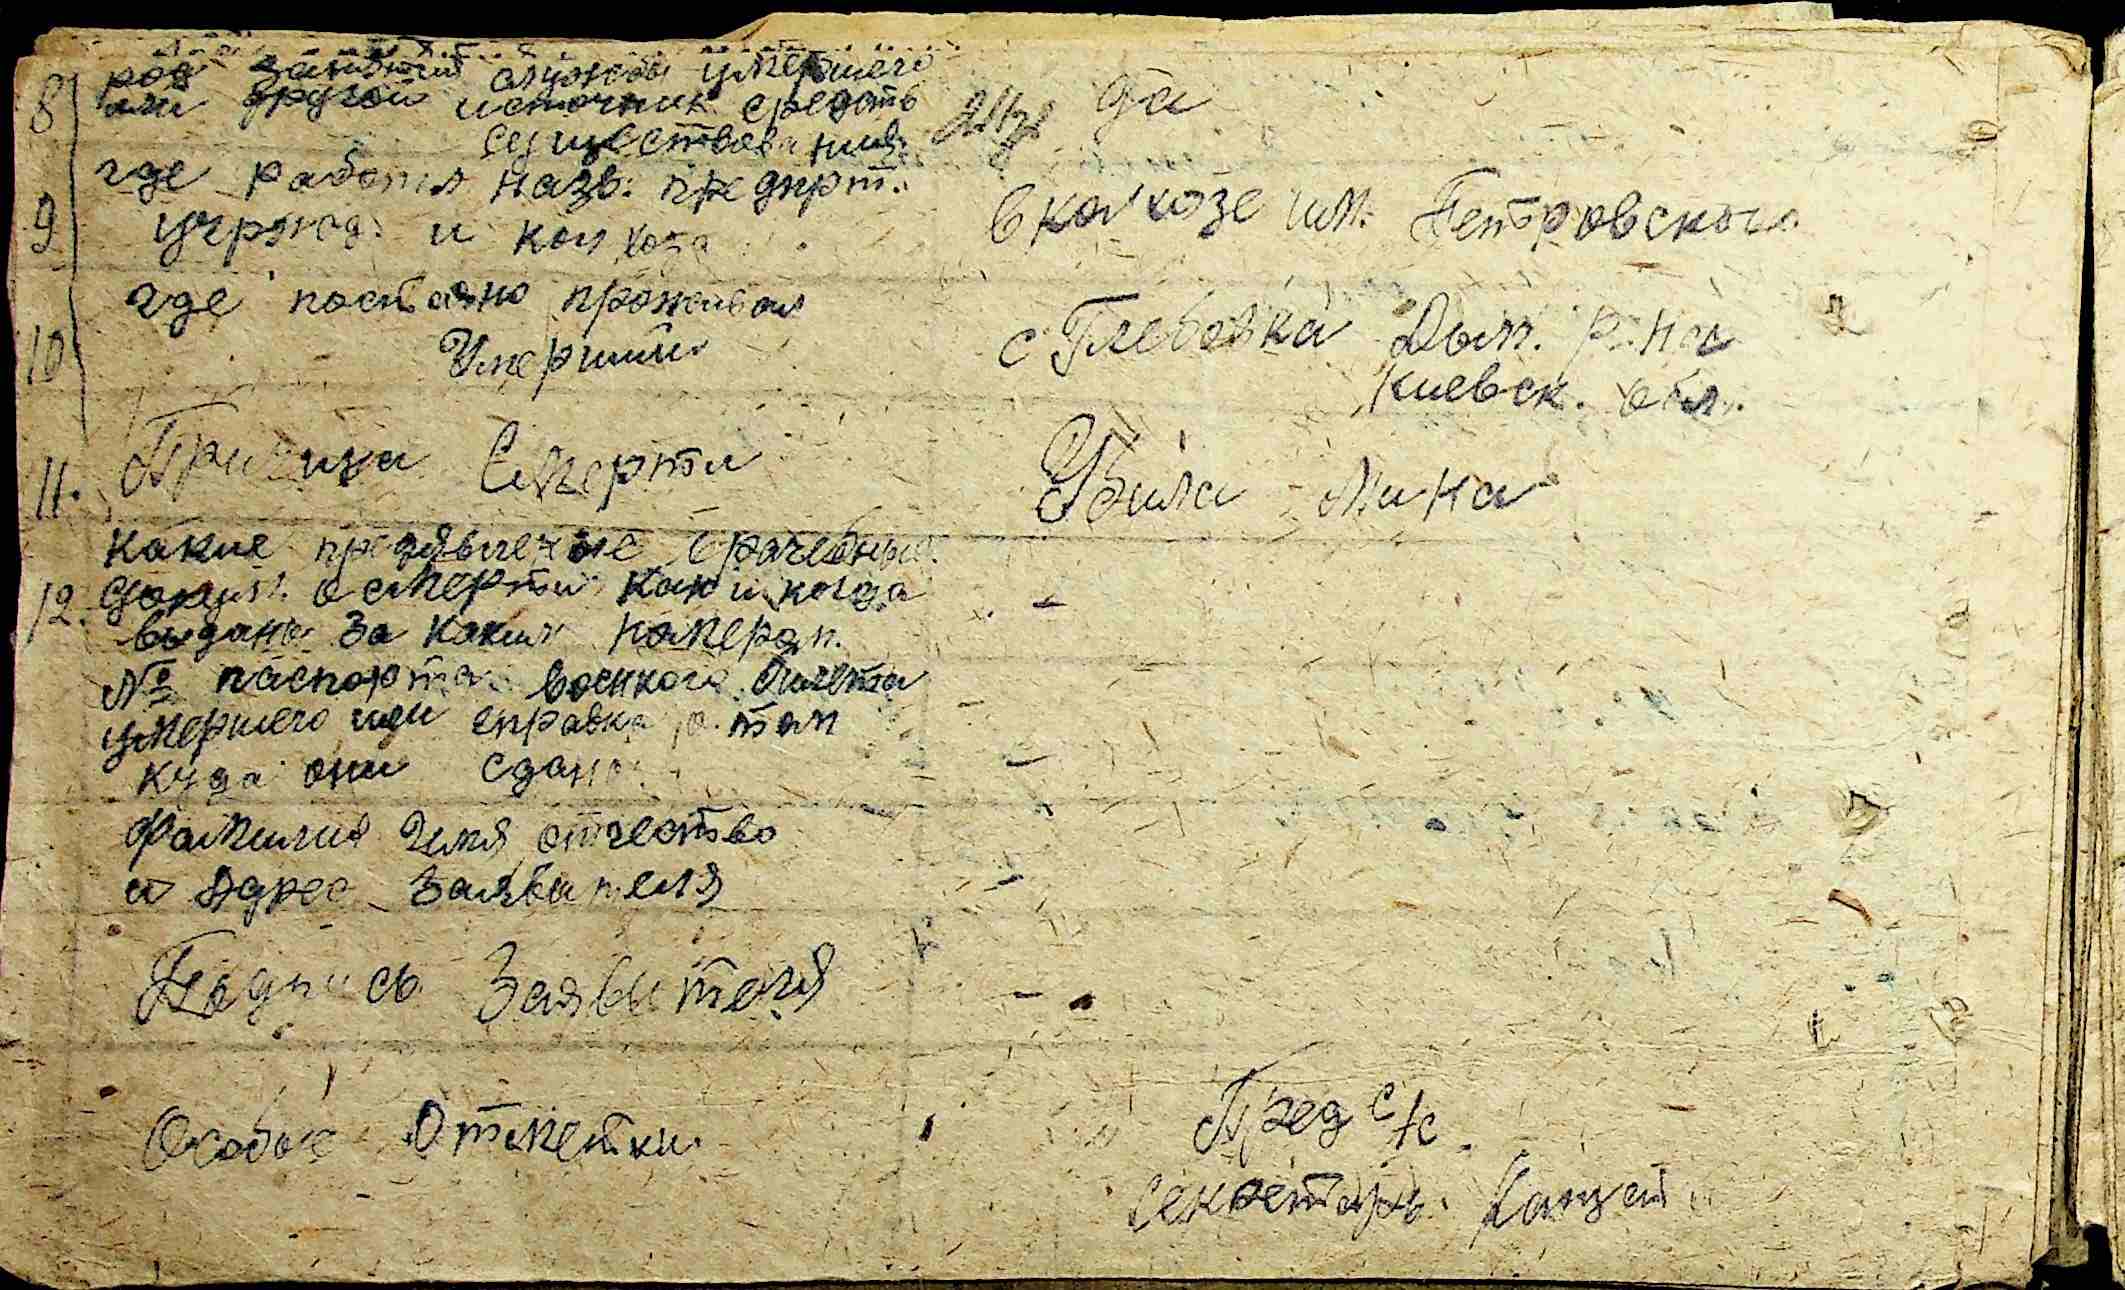 8 род занятий службы умершего
или другой источник средств да
существования
где работал назв. предпрт.
9 учрежд. и колхоза в колхозе им. Петровского
где постаяно проживал
10 Умерший с Глебовка Дым. р-на
Киевск. обл.
11. Причина Смерти Убила мина
какие предявленые врачебные
12. докум. о смерти как и когда -
выданы за каким номером.
№ паспорта военного билета
умершего или справка о том -
куда они сдано -
фамилия Имя отчество
и Адрес Заявителя -
Подпись Заявителя -
Особые Отметки Пред с/с
Секретарь